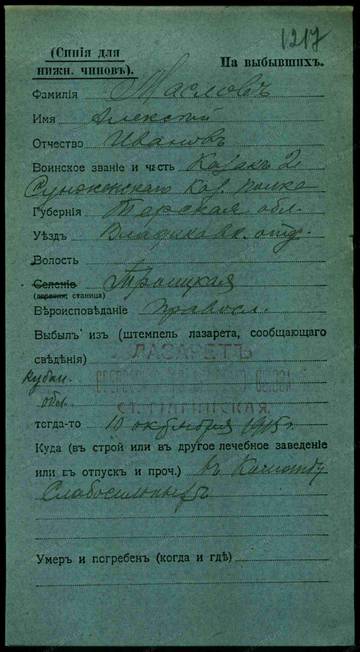 1217
(Синія для
нижн. чиновъ).
На выбывшихъ.
Фамилія Масловъ
Имя Алексѣй
Отчество Ивановъ
Воинское званіе и часть Казакъ 2
Сунженскаго Каз. полка
Губернія Терская обл.
Уѣздъ Владикавк. отд.
Волость
Селеніе Троицкая
(деревня, станица)
Вѣроисповѣданіе правосл.
Выбылъ изъ (штемпель лазарета, сообщающаго
свѣдѣнія) ЛАЗАРЕТЪ
Кубан.
обл.
СТ.
тогда-то 10 октября 1915 г.
Куда (въ строй или въ другое лечебное заведеніе
или въ отпускъ и проч.) въ Команду
Слабосильныхъ
Умеръ и погребенъ (когда и гдѣ)